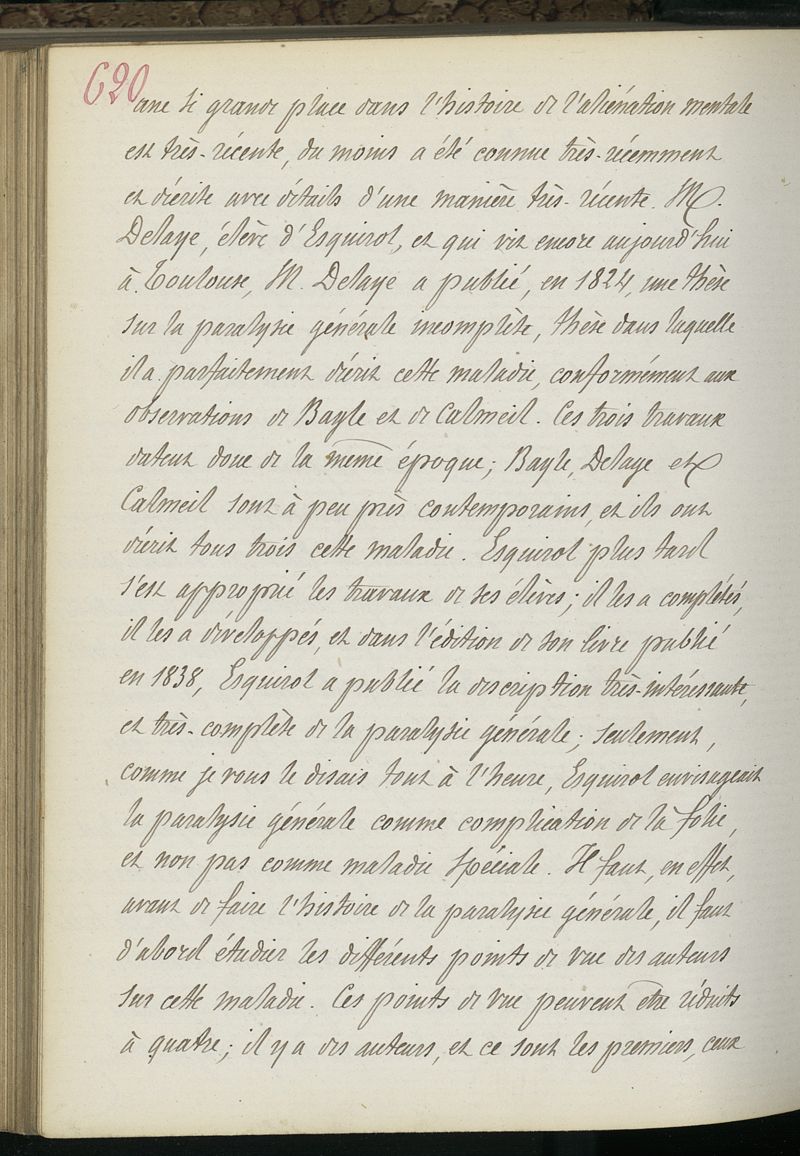 620
une si grande place dans l'histoire de l'aliénation mentale
est très-récente, du moins a été connue très-récemment
et décrite avec détails d'une manière très-récente. M.
Delaye, élève d'Esquirol, et qui vit encore aujourd'hui
à Toulouse, M. Delaye a publié, en 1824, une thèse
sur la paralysie générale incomplète, thèse dans laquelle
il a parfaitement décrit cette maladie, conformément aux
observations de Bayle et de Calmeil. Ces trois travaux
datent donc de la même époque; Bayle, Delaye et
Calmeil sont à peu près contemporains, et ils ont
décrit tous trois cette maladie. Esquirol plus tard
s'est approprié les travaux de ses élèves; il les a complétés,
il les a développés, et dans l'édition de son livre publié
en 1838, Esquirol a publié la description très-intéressante,
et très-complète de la paralysie générale; seulement,
comme je vous le disais tout à l'heure, Esquirol envisageait
la paralysie générale comme complication de la folie,
et non pas comme maladie spéciale. Il faut, en effet,
avant de faire l'histoire de la paralysie générale, il faut
d'abord étudier les différents points de vue des auteurs
sur cette maladie. Ces points de vue peuvent être réduits
à quatre; il y a des auteurs, et ce sont les premiers, ceux